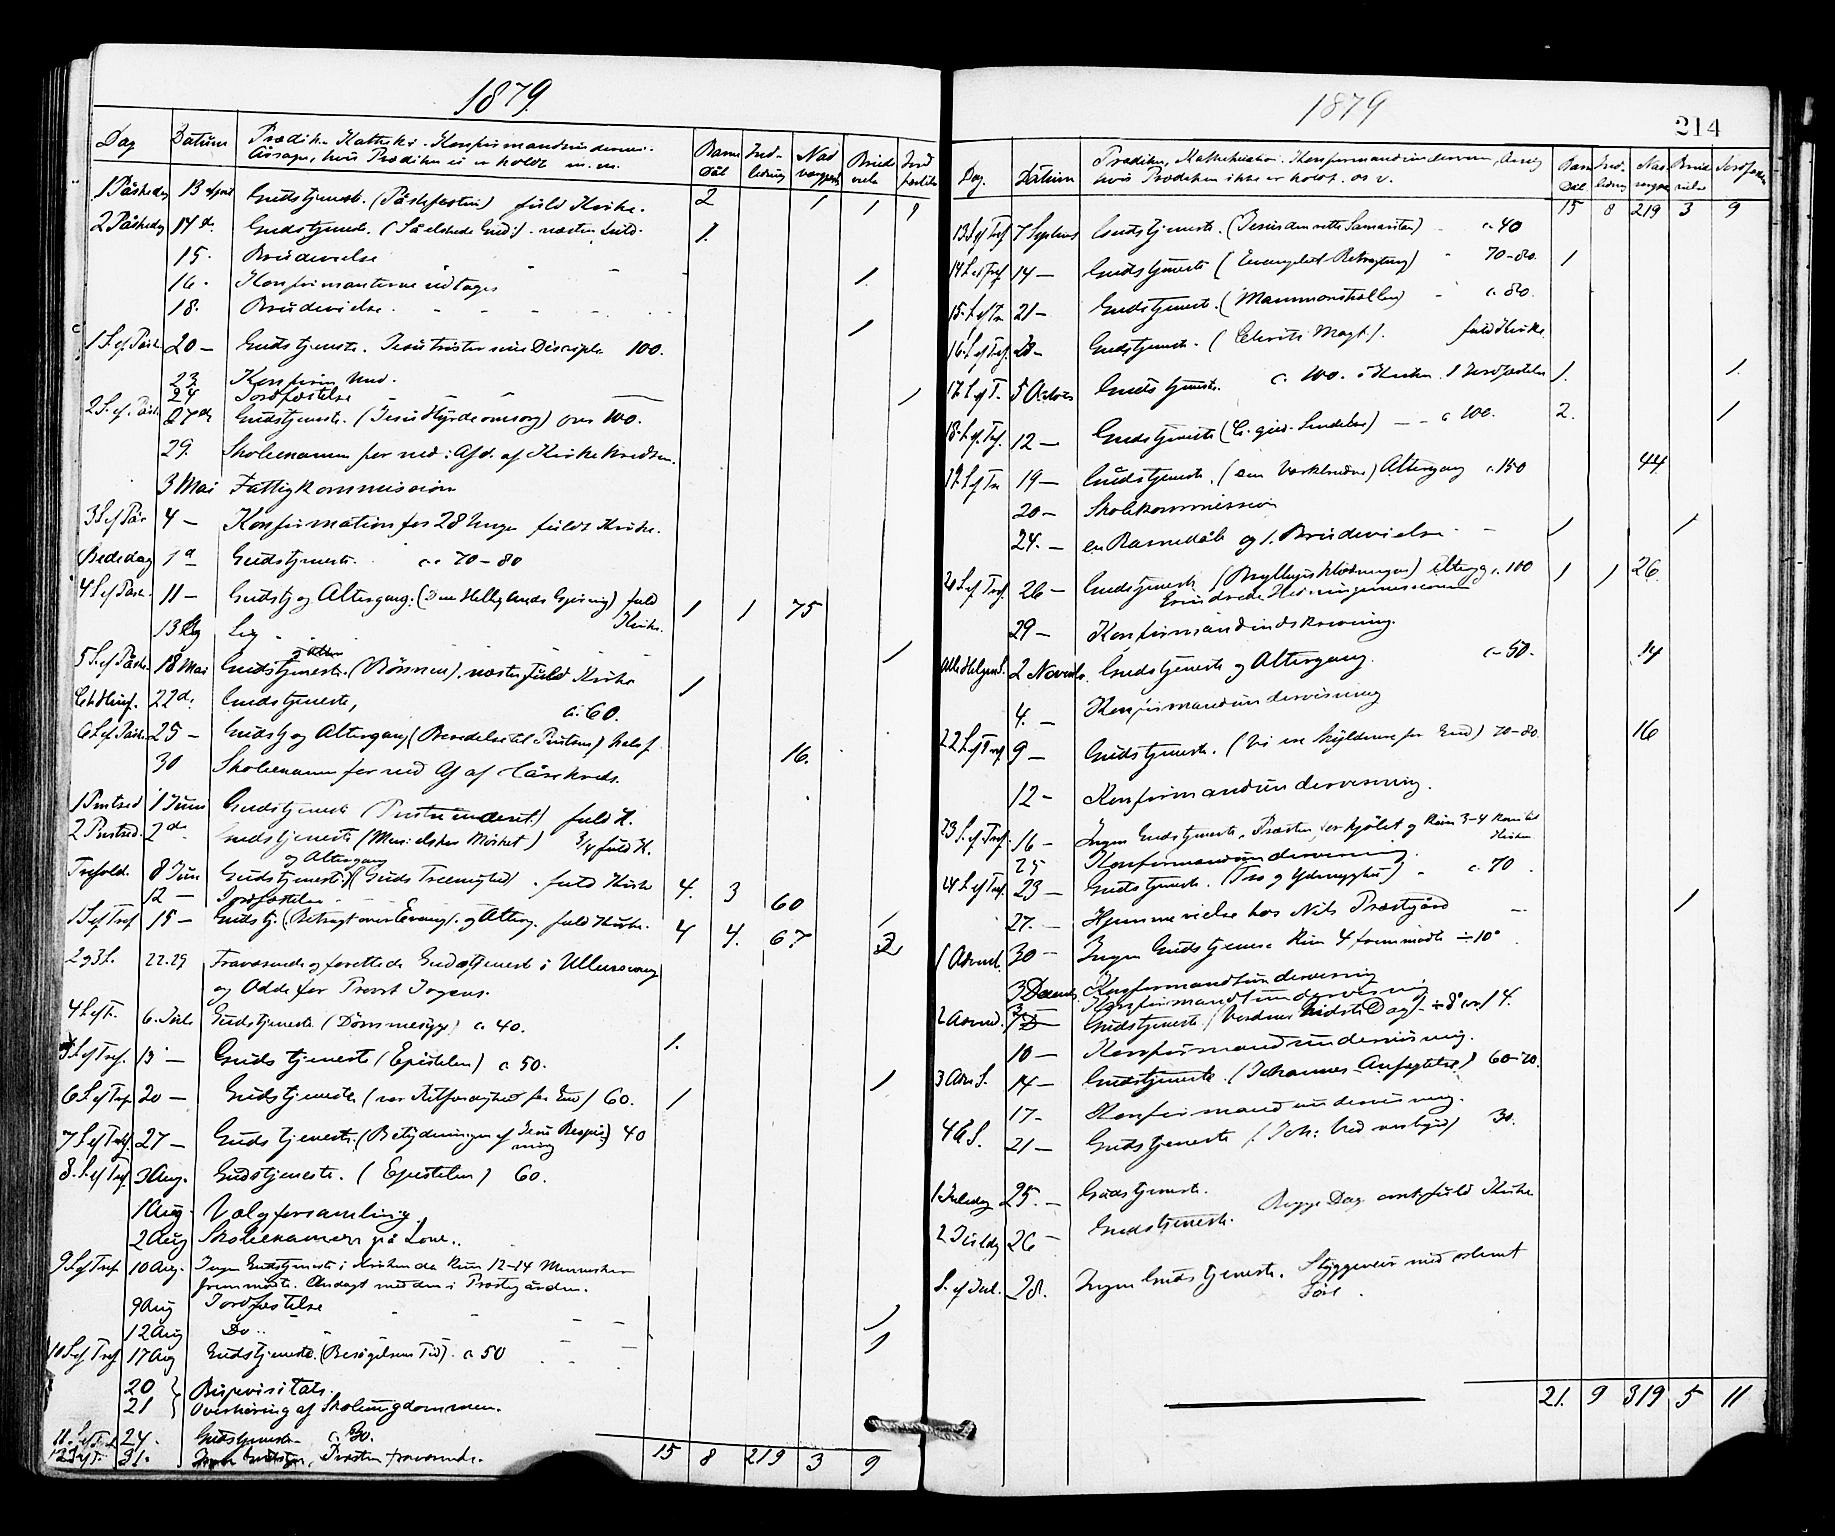 1879.
Dag Datum Prædiken, Katheki. Konfirmandundervisn.
Årsagen, hvis Prædiken ei er holdt m. m. Barne Dåb Ind- ledning Nad verdgjest Brude vielse Jord fæstelse
1 Påskedag 13 April Gudstjeneste. (Påskefesten) fuld Kirke. 2 1 1 1
2 Påskedag 14 d. Gudstjeneste. næsten fuld. 1.
15. Brudevielse
16. Konfirmanterne udtages 1.
18. Brudevielse. 1
1 S. ef Påsk. 20 — Gudstjeneste. Jesu trøster sine Disciple 100.
23 Konfirm. Und.
24 Jordfæstelse 1
2 S. ef. Påsk. 27 d. Gudstjeneste. (Jesu Hyrdeomsorg) over 100.
29. Skoleexamen for ned: Afd. af Kirkekredsen.
3 Mai Fattigkommission
3 S. ef Pås 4 — Konfirmation for 28 Unge fuldt Kirke.
Bededag Gudstjeneste. c. 70-80
4 S. ef Påsk. 11 — Gudstj og Altergang. (Den Helligånds Gjerning) fuld Kirke. 1 1 75
13 Lig 1
5 S. ef Påske. 18 Mai Gudstjeneste. (Bønnen). næsten fuld Kirke 1
Chr Himf. 22 d. Gudstjeneste, c. 60.
6 S. ef Påske. 25 — Gudstj og Altergang (Beredelse til Pintsen) 16.
30 Skoleexamen for ned Af af Kreds.
1 Pintsed 1 Juni Gudstjeneste (Pintseunderet) fuld K.
2 Pintsed. 2 d. Gudstjeneste (Men: elsker Mørket) 3/4 fuld K.
og Altergang
Trefold. 8 Juni Gudstjeneste (Guds Treenighed) . fuld Kirke 4. 3 60
12 — Jordfæstelse 1
1 S ef Tref 15 — Gudstj. (Betragt over Evang). og Alterg. fuld Kirke. 4 4. 67 2
2 og 3 S. 22. 29 Fraværende og forettede Gudstjeneste i Ullensvang
og Odde for Provst
4 S ef Tr. 6. Juli Gudstjeneste (Dømmesyge) c. 40.
5 S ef Tref. 13 — Guds tjeneste (Epistelen) c 50. 1.
6 S ef Tref. 20 — Gudstjeneste (vor Retfærdighed for Gud) 60. 1 1
7 S ef Tref. 27 — Guds tjeneste. (Betydningen af Jesu Bespis- ning) 40
8. S. ef Tref. 3 Aug. Gudstjeneste. (Epistelen) 60.
1 Aug. Valgforsamling.
2 Aug Skoleexamen på
9 S ef Tref 10 Aug. Ingen Gudstjeneste i Kirken da kun 12-14 Mennesker
fremmødte. Andagt med dem i Prestegården.
9 Aug Jordfæstelse 1
12 Aug Do.. 1
10 S. ef Tref 17 Aug Gudstjeneste. (Besøgelsens Tid). c 50
20 } Bispevisitats.
21 } Overhøring af Skoleungdommen.
11. S ef Tref 24. Gudstjeneste
12 S ef T. 31. Præsten fraværende.
15 8 219 3 9
1879
214
Dag. Datum Prædiken, Katekisation. Konfirmandundervisn, Årsag
hvis Prædiken ikke er holdt. os v. Barne Dåb Ind- ledning Nad- Brude vielse Jordfæstn
15 8 219 3 9
13 S ef Tref 7 Septemb Gudstjeneste. (Jesus den rette Samaritan) c. 40
14 S ef Tref 14 — Gudstjeneste (Evangeliet Betragtning) 70-80. 1
15. S. ef Tr 21 — Gudstjeneste. (Mammonstrællen) c. 80.
16. S. ef Tref. 28 — Gudstjeneste. (Christi Magt). fuld Kirke
17. S. ef T. 5 Octob Guds tjeneste. c. 100. i Kirken. 1 Jordfæstelse 1. 1.
18. S. ef. Tref. 12 — Gudstjeneste c 100. 2. 1
19. S ef Tr 19 — Gudstjeneste. (den Værkbrudne) Altergang c. 150 44
20 — Skolekommission
24. — en Barnedåb og 1. Brudevielse 1 1
20 S ef Tref. 26 — Gudstjeneste (Bryllupsklædningen) Alterg c. 100 1 1 26
Erindrede Hedningemissionen
29 — Konfirmandindskrivning.
Alle Helgens. 2 Novemb. Gudstjeneste og Altergang. c. 50. 14
4. — Konfirmandundervisning
22 S. ef Tref 9 — Gudstjeneste. (Vi ere Skyldnere for Gud) 70-80. 16
12 — Konfirmandundervisning.
23 S. ef Tref. 16 — Ingen Gudstjeneste. Præsten forkjølet og kun 3-4 kom til Kirken
25 Konfirmandundervisning.
24 S. ef Tref. 23 — Gudstjeneste. (Tro og Ydmyghed) c. 70
27. — Hjemmevielse hos Nils Præstgård 1
1 Advent. 30 — Ingen Gudstjeneste kun 4 fremmødte ÷ 10°
3 Decemb. Konfirmandundervisning
Konfirmandtundervisning
2 Advend. 7 D — Gudstjeneste (Verdens sidste Dag)
10 — Konfirmandundervisning.
3 Adv S. 14 — Gudstjeneste. (Johannes Anfægtelse) 60-70.
17. Konfirmandundervisning.
4 A S. 21 — Gudstjeneste 30.
1 Juledag 25. — Gudstjeneste. Begge Dage omt. fuld Kirke
2 Juldag 26 — Gudstjeneste.
S. ef Jul. 28. Ingen Gudstjeneste. Styggeveir med slemt
Føre.
21. 9 319 5 11